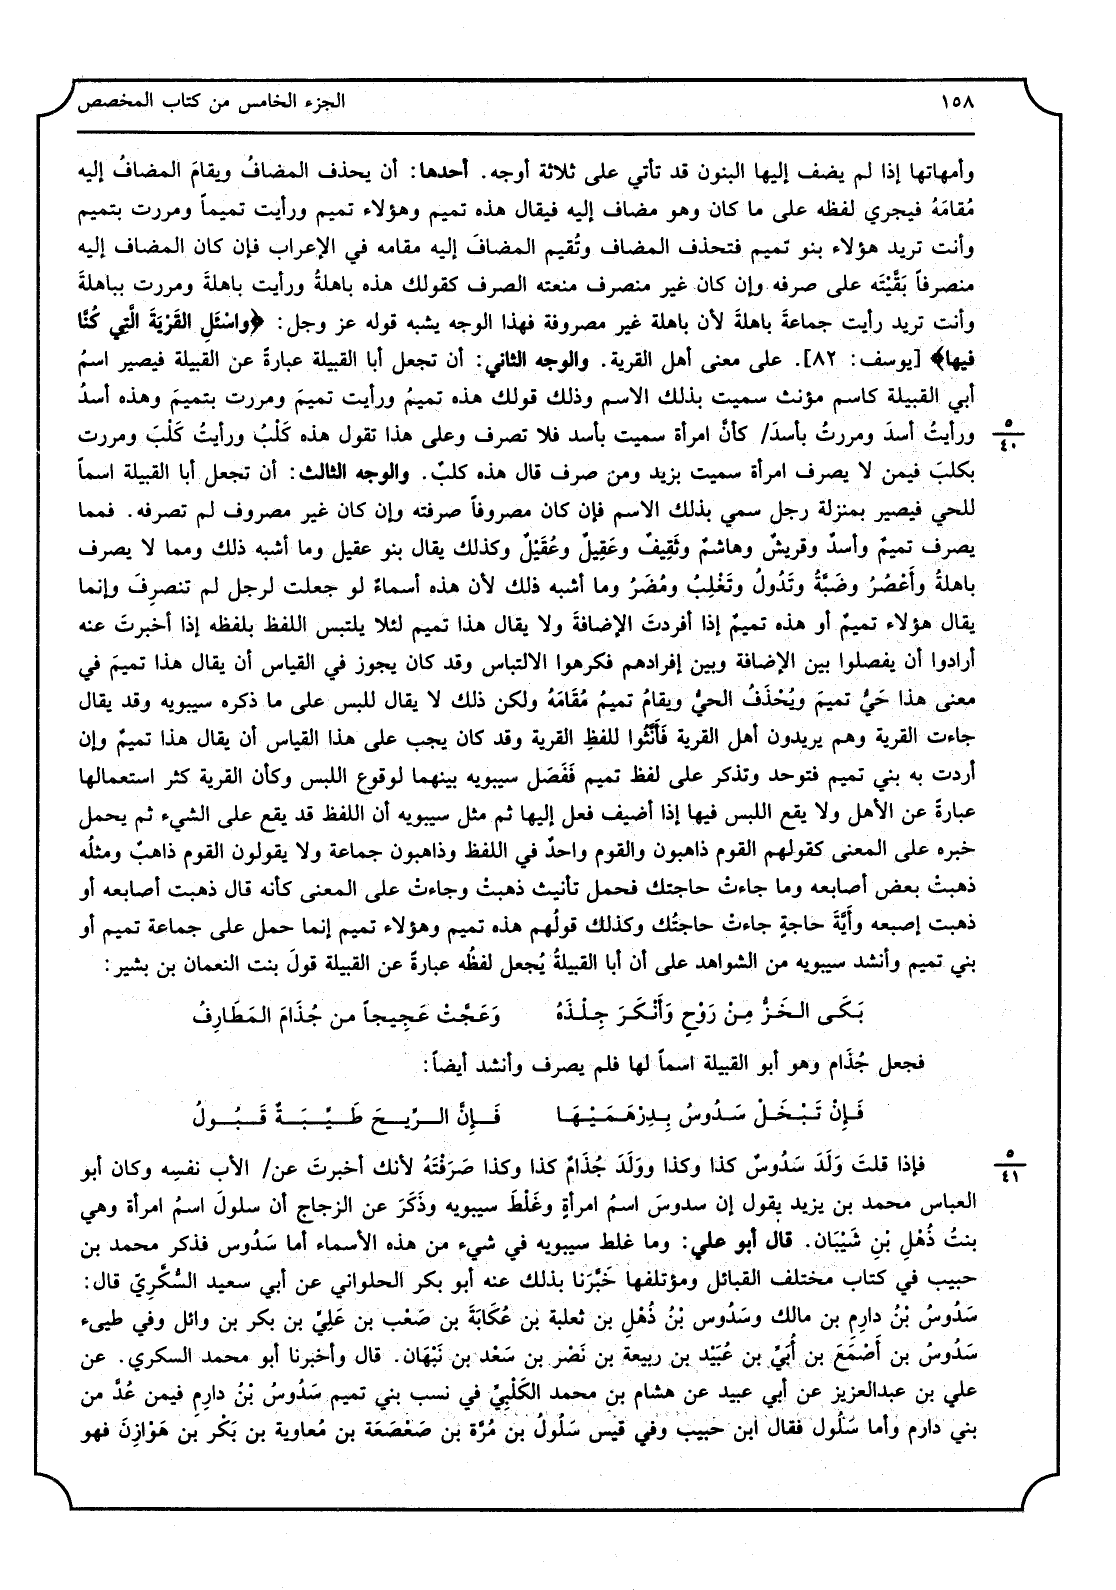 ١٥٨ الجزء الخامس من كتاب المخصص
وأمهاتها إذا لم يضف إليها البنون قد تأتي على ثلاثة أوجه. أحدها: أن يحذف المضافُ ويقامَ المضافُ إليه
مُقامَهُ فيجري لفظه على ما كان وهو مضاف إليه فيقال هذه تميم وهؤلاء تميم ورأيت تميماً ومررت بتميم
وأنت تريد هؤلاء بنو تميم فتحذف المضاف وتُقيم المضافَ إليه مقامه في الإعراب فإن كان المضاف إليه
منصرفاً بَقَّيْتَه على صرفه وإن كان غير منصرف منعته الصرف كقولك هذه باهلةُ ورأيت باهلةَ ومررت بباهلةَ
وأنت تريد رأيت جماعةَ باهلةَ لأن باهلة غير مصروفة فهذا الوجه يشبه قوله عز وجل: ﴿واسْئَلِ القَرْيَةَ الَّتِي كُنَّا
فيها﴾ [يوسف: ٨٢]. على معنى أهل القرية. والوجه الثاني: أن تجعل أبا القبيلة عبارةً عن القبيلة فيصير اسمُ
أبي القبيلة كاسم مؤنث سميت بذلك الاسم وذلك قولك هذه تميمُ ورأيت تميمَ ومررت بتميمَ وهذه أسدُ
ورأيتُ أسدَ ومررتُ بأسدَ/ كأنَّ امرأة سميت بأسد فلا تصرف وعلى هذا تقول هذه كَلْبُ ورأيتُ كَلْبَ ومررت
٥
٤٠
بكلبَ فيمن لا يصرف امرأة سميت بزيد ومن صرف قال هذه كلبٌ. والوجه الثالث: أن تجعل أبا القبيلة اسماً
للحي فيصير بمنزلة رجل سمي بذلك الاسم فإن كان مصروفاً صرفته وإن كان غير مصروف لم تصرفه. فمما
يصرف تميمٌ وأسدٌ وقريشٌ وهاشمٌ وثَقِيفٌ وعَقِيلٌ وعُقَيْلٌ وكذلك يقال بنو عقيل وما أشبه ذلك ومما لا يصرف
باهلةُ وأَعْصُرُ وضَبَّةُ وتَدُولُ وتَغْلِبُ ومُضَرُ وما أشبه ذلك لأن هذه أسماءٌ لو جعلت لرجل لم تنصرِفَ وإنما
يقال هؤلاء تميمٌ أو هذه تميمٌ إذا أفردتَ الإضافةَ ولا يقال هذا تميم لئلا يلتبس اللفظ بلفظه إذا أخبرتَ عنه
أرادوا أن يفصلوا بين الإضافة وبين إفرادهم فكرهوا الالتباس وقد كان يجوز في القياس أن يقال هذا تميمَ في
معنى هذا حَيُّ تميمَ ويُحْذَفُ الحيُّ ويقامُ تميمُ مُقَامَهُ ولكن ذلك لا يقال للبس على ما ذكره سيبويه وقد يقال
جاءت القرية وهم يريدون أهل القرية فَأَنَّثُوا للفظِ القرية وقد كان يجب على هذا القياس أن يقال هذا تميمٌ وإن
أردت به بني تميم فتوحد وتذكر على لفظ تميم فَفَصَل سيبويه بينهما لوقوع اللبس وكأن القرية كثر استعمالها
عبارةً عن الأهل ولا يقع اللبس فيها إذا أضيف فعل إليها ثم مثل سيبويه أن اللفظ قد يقع على الشيء ثم يحمل
خبره على المعنى كقولهم القوم ذاهبون والقوم واحدٌ في اللفظ وذاهبون جماعة ولا يقولون القوم ذاهبٌ ومثلُه
ذهبتْ بعض أصابعه وما جاءتْ حاجتك فحمل تأنيث ذهبتْ وجاءتْ على المعنى كأنه قال ذهبت أصابعه أو
ذهبت إصبعه وأَيَّةَ حاجةٍ جاءتْ حاجتُك وكذلك قولُهم هذه تميم وهؤلاء تميم إنما حمل على جماعة تميم أو
بني تميم وأنشد سيبويه من الشواهد على أن أبا القبيلةُ يُجعل لفظُه عبارةً عن القبيلة قولَ بنت النعمان بن بشير:
بَكَى الخَزُّ مِنْ رَوْحٍ وَأَنْكَرَ جِلْدَهُ وَعَجَّتْ عَجِيجاً من جُذَامَ المَطَارِفُ
فجعل جُذَام وهو أبو القبيلة اسماً لها فلم يصرف وأنشد أيضاً:
فَإِنْ تَبْخَلْ سَدُوسُ بِدِرْهَمَيْهَا فَإِنَّ الرِّيحَ طَيِّبَةٌ قَبُولُ
فإذا قلتَ وَلَدَ سَدُوسٌ كذا وكذا وولَدَ جُذَامٌ كذا وكذا صَرَفْتَهُ لأنك أخبرتَ عن/ الأب نفسِه وكان أبو
٥
٤١
العباس محمد بن يزيد يقول إن سدوسَ اسمُ امرأةٍ وغَلْطَ سيبويه وذَكَرَ عن الزجاج أن سلولَ اسمُ امرأة وهي
بنتُ ذُهْلِ بْنِ شَيْبَان. قال أبو علي: وما غلط سيبويه في شيء من هذه الأسماء أما سَدُوس فذكر محمد بن
حبيب في كتاب مختلف القبائل ومؤتلفها خَبَّرَنا بذلك عنه أبو بكر الحلواني عن أبي سعيد السُّكَّرِيّ قال:
سَدُوسُ بْنُ دارِم بن مالك وسَدُوس بْنُ ذُهْلِ بن ثعلبة بن عُكَابَةَ بن صَعْب بن عَلِيّ بن بكر بن وائل وفي طيىء
سَدُوسُ بن أَصْمَعَ بن أُبَيِّ بن عُبَيْد بن ربيعة بن نَصْر بن سَعْد بن نَبْهَان. قال وأخبرنا أبو محمد السكري. عن
علي بن عبدالعزيز عن أبي عبيد عن هشام بن محمد الكَلْبِيِّ في نسب بني تميم سَدُوسُ بْنُ دارِم فيمن عُدَّ من
بني دارم وأما سَلُول فقال ابن حبيب وفي قيس سَلُولُ بن مُرَّة بن صَعْصَعَة بن مُعاوية بن بَكْر بن هَوْازِنَ فهو